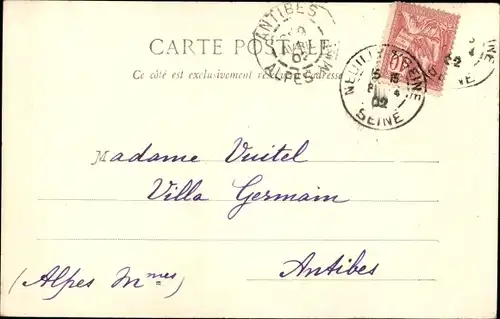 CARTE POSTALE
Ce côté est exclusivement réservé à l'adresse
ANTIBES
ALPES
NEUILLY S SEINE
02
SEINE
10
Madame Vuitel
Villa Germain
Antibes
(Alpes Mmes)